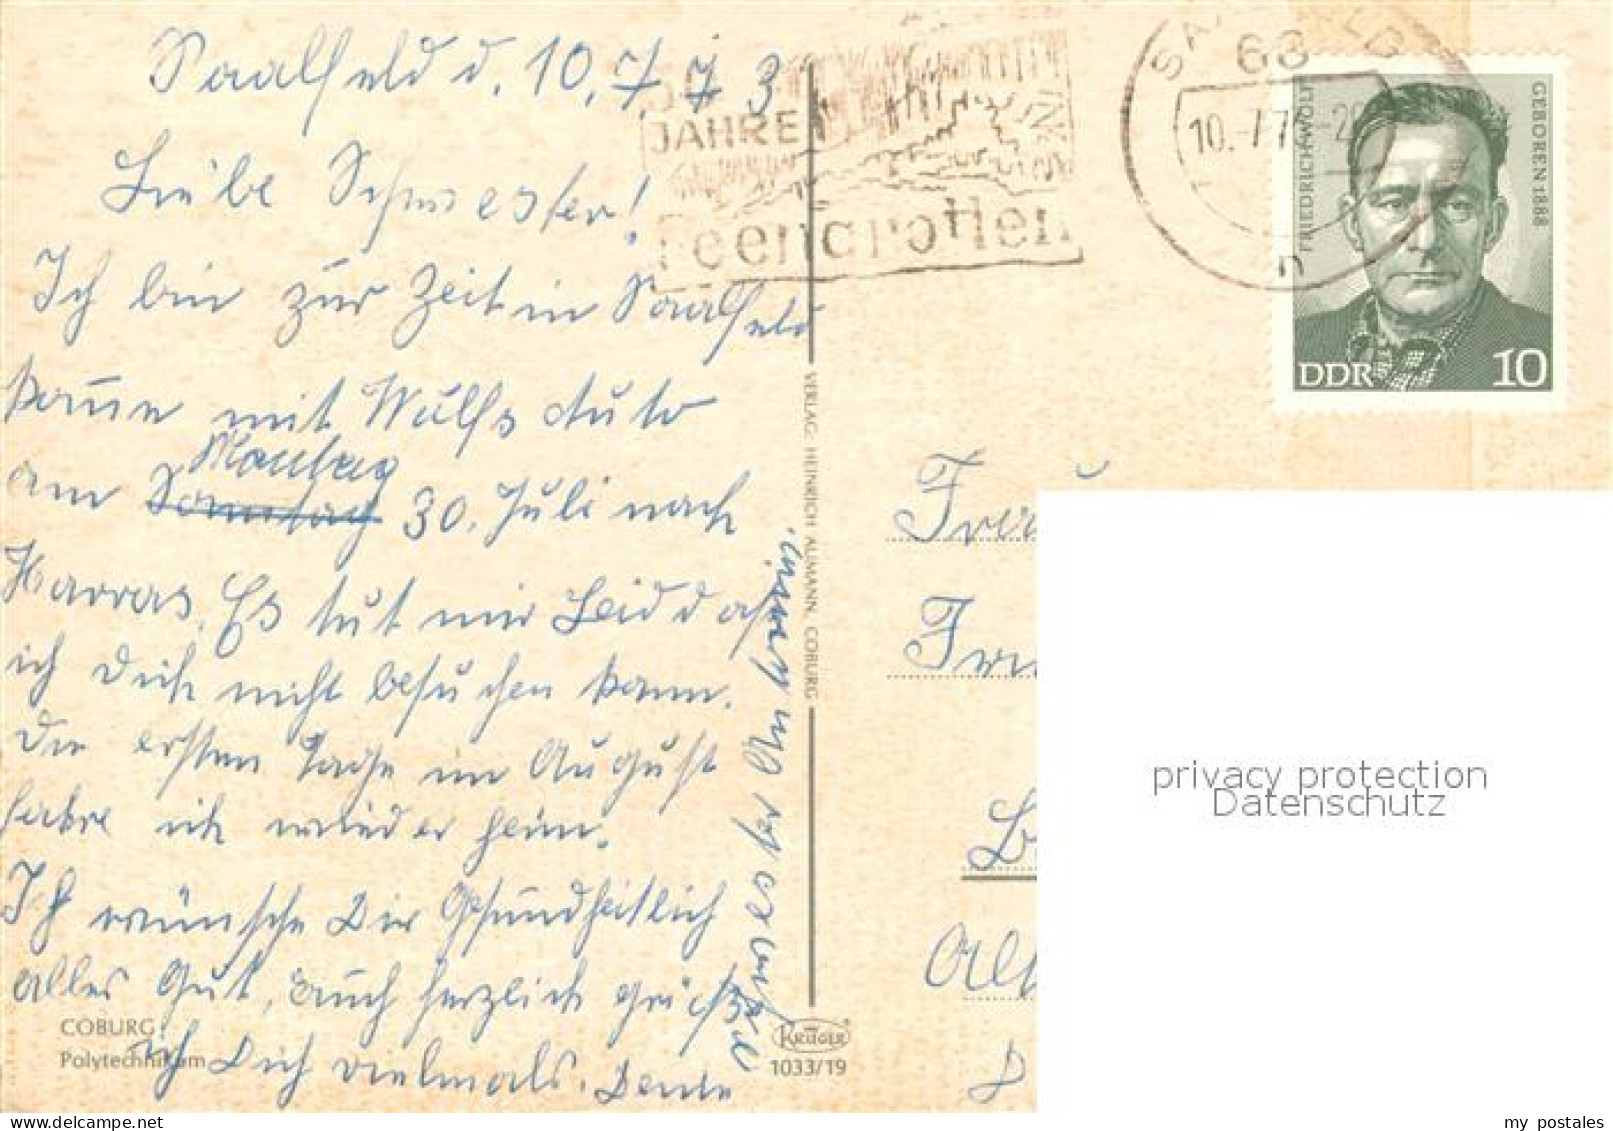 Saalfeld d. 10.7.73
Liebe Schwester!
Ich bin zur Zeit in Saalfeld
kann mit Wulfs Auto
Montag
am Sonntag 30. Juli nach
Harras. Es tut mir Leid daß
ich Dich nicht besuchen kann.
Die ersten Tage im August
fahre ich wieder heim.
Ich wünsche Dir Gesundheitlich
alles Gut, auch herzlich grüßt
ich Dich vielmals. Deine
Schwester
JAHRE
Feengrotten
SAALFELD
68
10.-7.7
n
FRIEDRICH WOLF
GEBOREN 1888
DDR 10
VERLAG: HEINRICH AUMANN, COBURG
COBURG
Polytechnikum
KRÜGER
1033/19
Frau
privacy protection
Datenschutz
my postales
www.delcampe.net